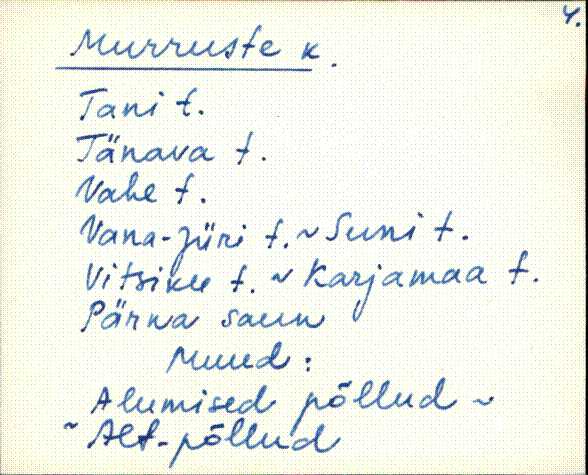 4.
Murruste k.
Tani t.
Tänava t.
Vahe t.
Vana-Jüri t. ~ Suni t.
Vitsiku t. ~ Karjamaa t.
Pärna saun
Muud:
Alumised põllud ~
~ Alt-põllud